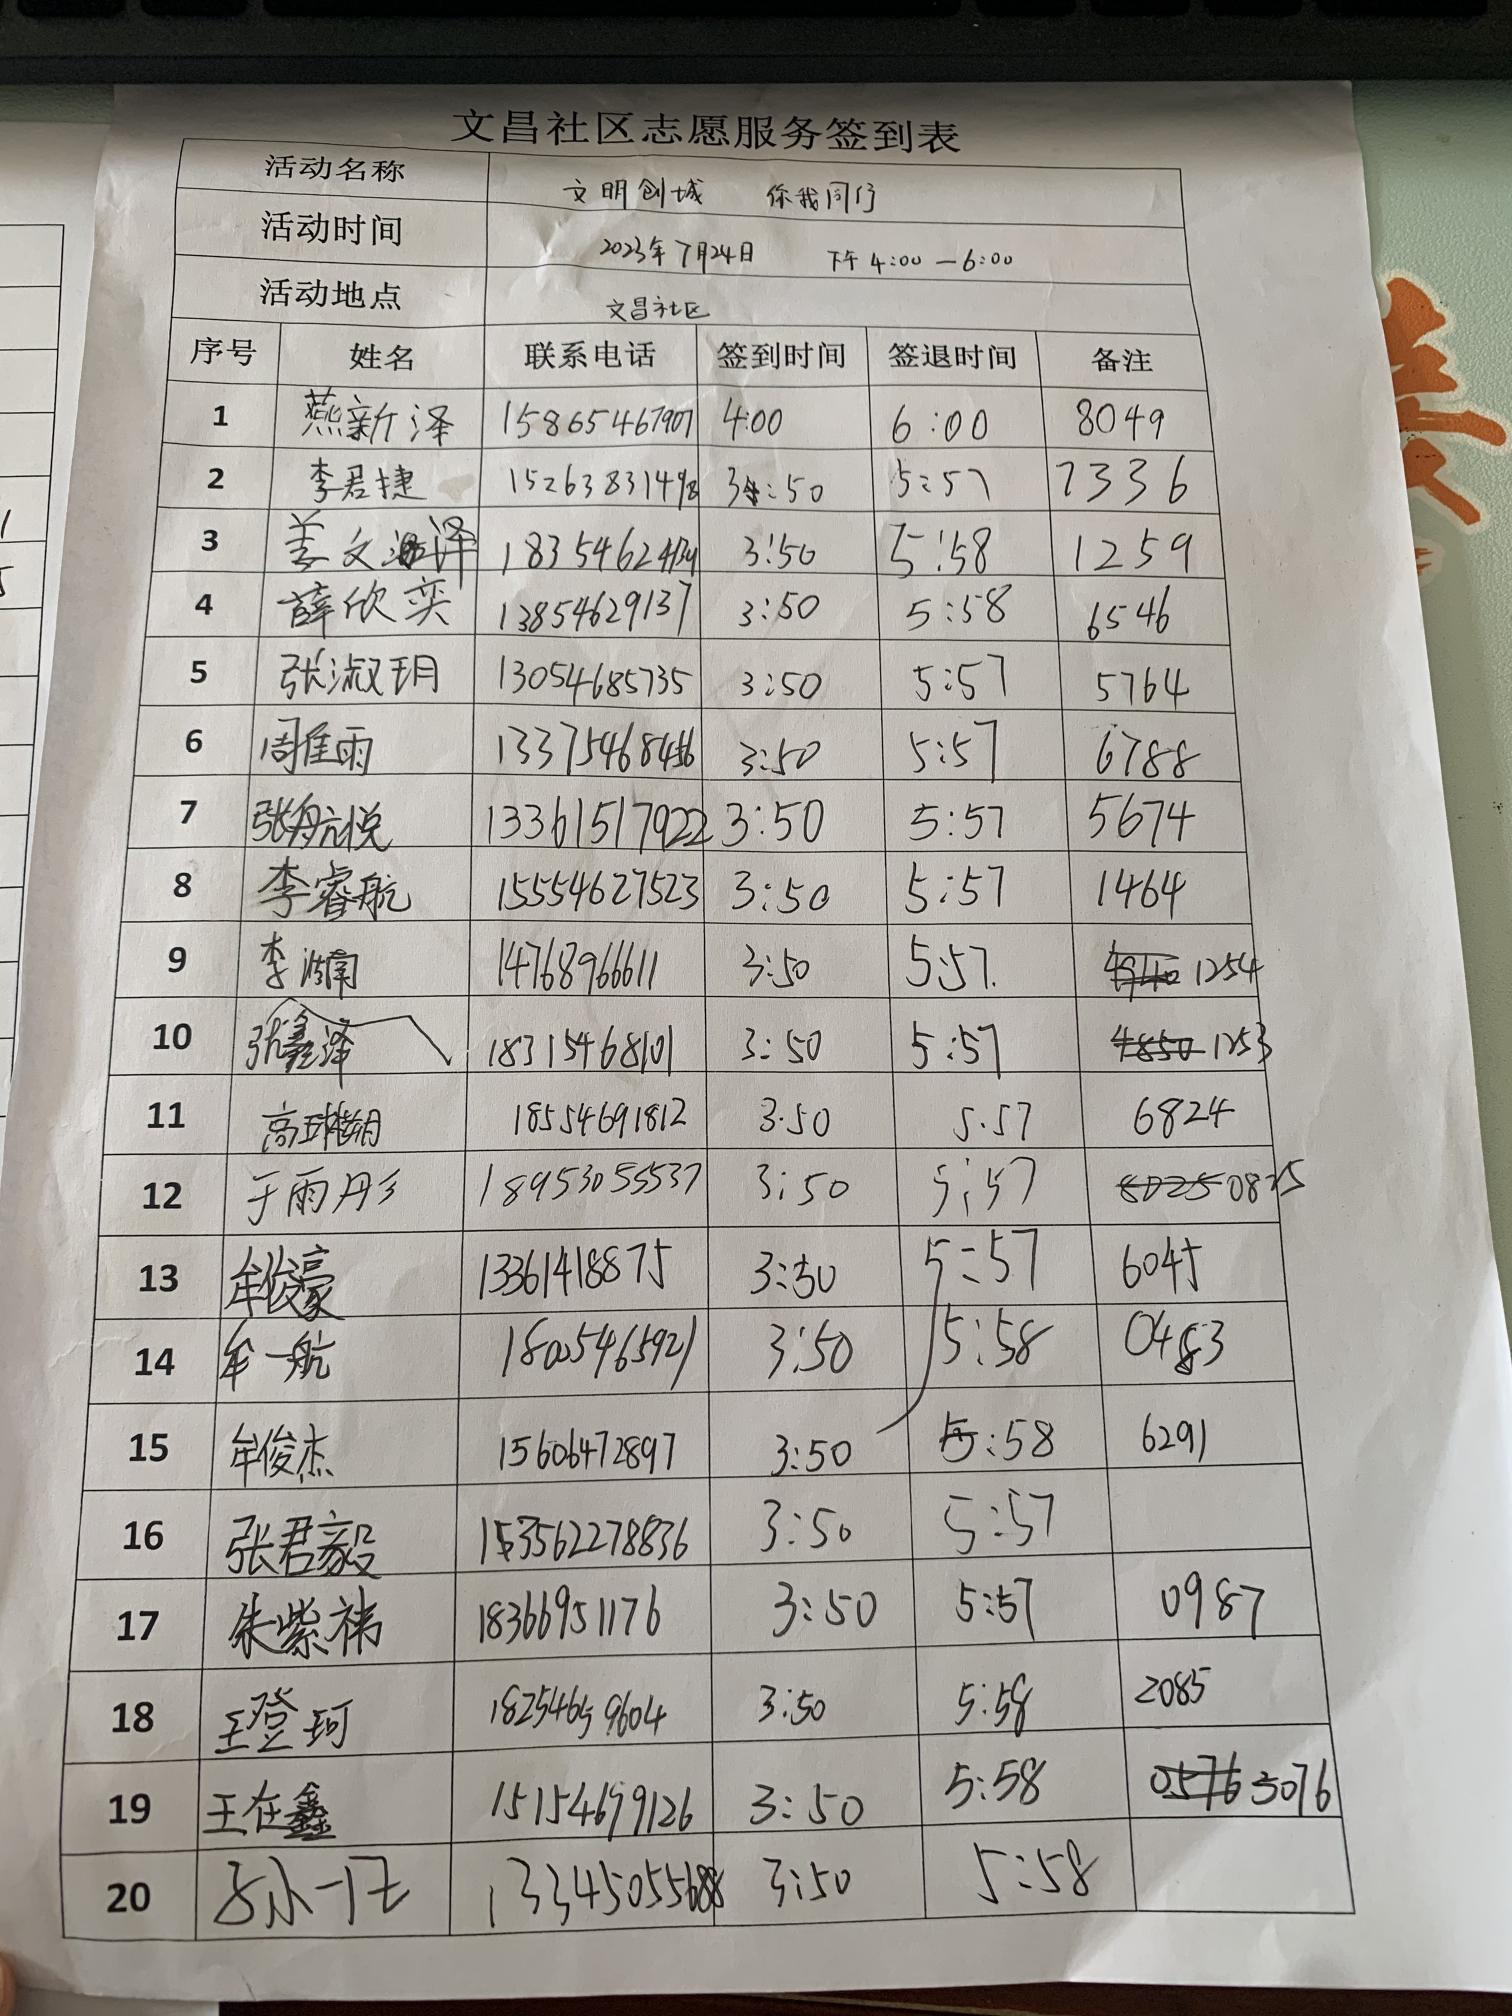 文昌社区志愿服务签到表
活动名称 文明创城 你我同行
活动时间 2023年7月24日 下午4:00—6:00
活动地点 文昌社区
序号 姓名 联系电话 签到时间 签退时间 备注
1 燕新泽 15865467907 4:00 6:00 8049
2 李君捷 15263831498 3:50 5:57 7336
3 姜文泽 3:50 5:58 1259
4 薛欣奕 13854629137 3:50 5:58 6546
5 张淑玥 13054685735 3:50 5:57 5764
6 周雨 13375468456 3:50 5:57 6788
7 张航悦 13361517922 3:50 5:57 5674
8 李睿航 15554627523 3:50 5:57 1464
9 李 14768966611 3:50 5:57. 1254
10 张鑫泽 18315468101 3:50 5:57 1253
11 高 18554691812 3.50 5.57 6824
12 于雨彤 18953055537 3:50 5:57 0825
13 牟俊豪 13361418875 3:50 5:57 6045
14 牟一航 18025465921 3:50 5:58 0483
15 牟俊杰 15606472897 3:50 5:58 6291
16 张君毅 3:50 5:57
17 朱紫祎 18366951176 3:50 5:57 0987
18 王登珂 18254659604 3:50 5:58 2085
19 王在鑫 15154699126 3:50 5:58 3076
20 13345055688 3:50 5:58